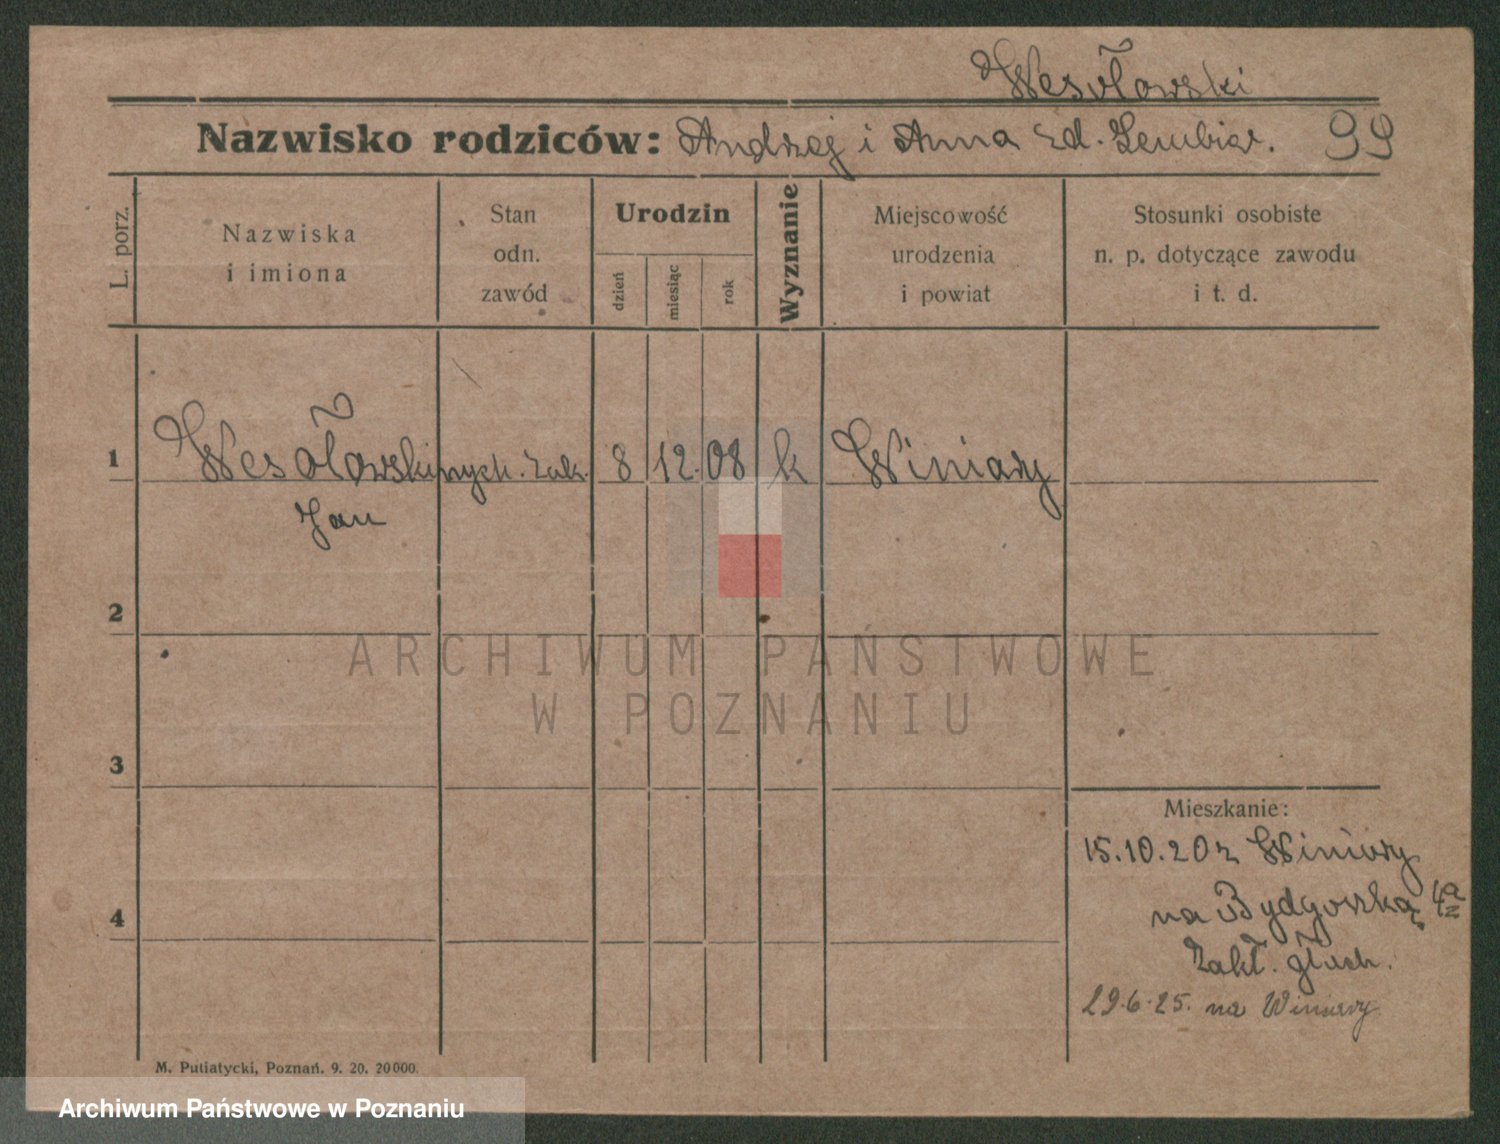 Wesołowski
Nazwisko rodziców: Andrzej i Anna zd. Lembicz. 99
L. porz.
Nazwiska
i imiona
Stan
odn.
zawód
Urodzin
dzień
miesiąc
rok
Wyznanie
Miejscowość
urodzenia
i powiat
Stosunki osobiste
n. p. dotyczące zawodu
i t. d.
1 Wesołowski wych. zak. 8 12. 08 k Winiary
Jan
2
ARCHIWUM PAŃSTWOWE
W POZNANIU
3
Mieszkanie:
15.10.20 z Winiary
na Bydgoską 4a
4
Zakł. głuch.
29.6.25. na Winiary
M. Putiatycki, Poznań. 9. 20. 20000.
Archiwum Państwowe w Poznaniu